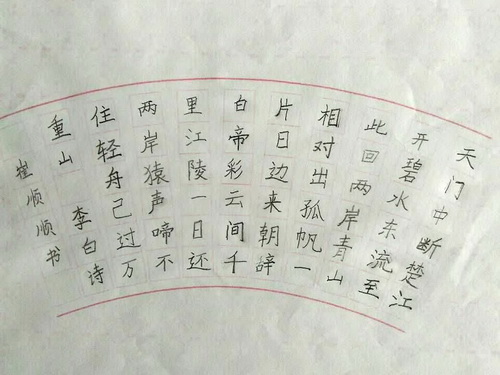 天门中断楚江
开碧水东流至
此回两岸青山
相对出孤帆一
片日边来朝辞
白帝彩云间千
里江陵一日还
两岸猿声啼不
住轻舟己过万
重山 李白诗
崔顺顺书